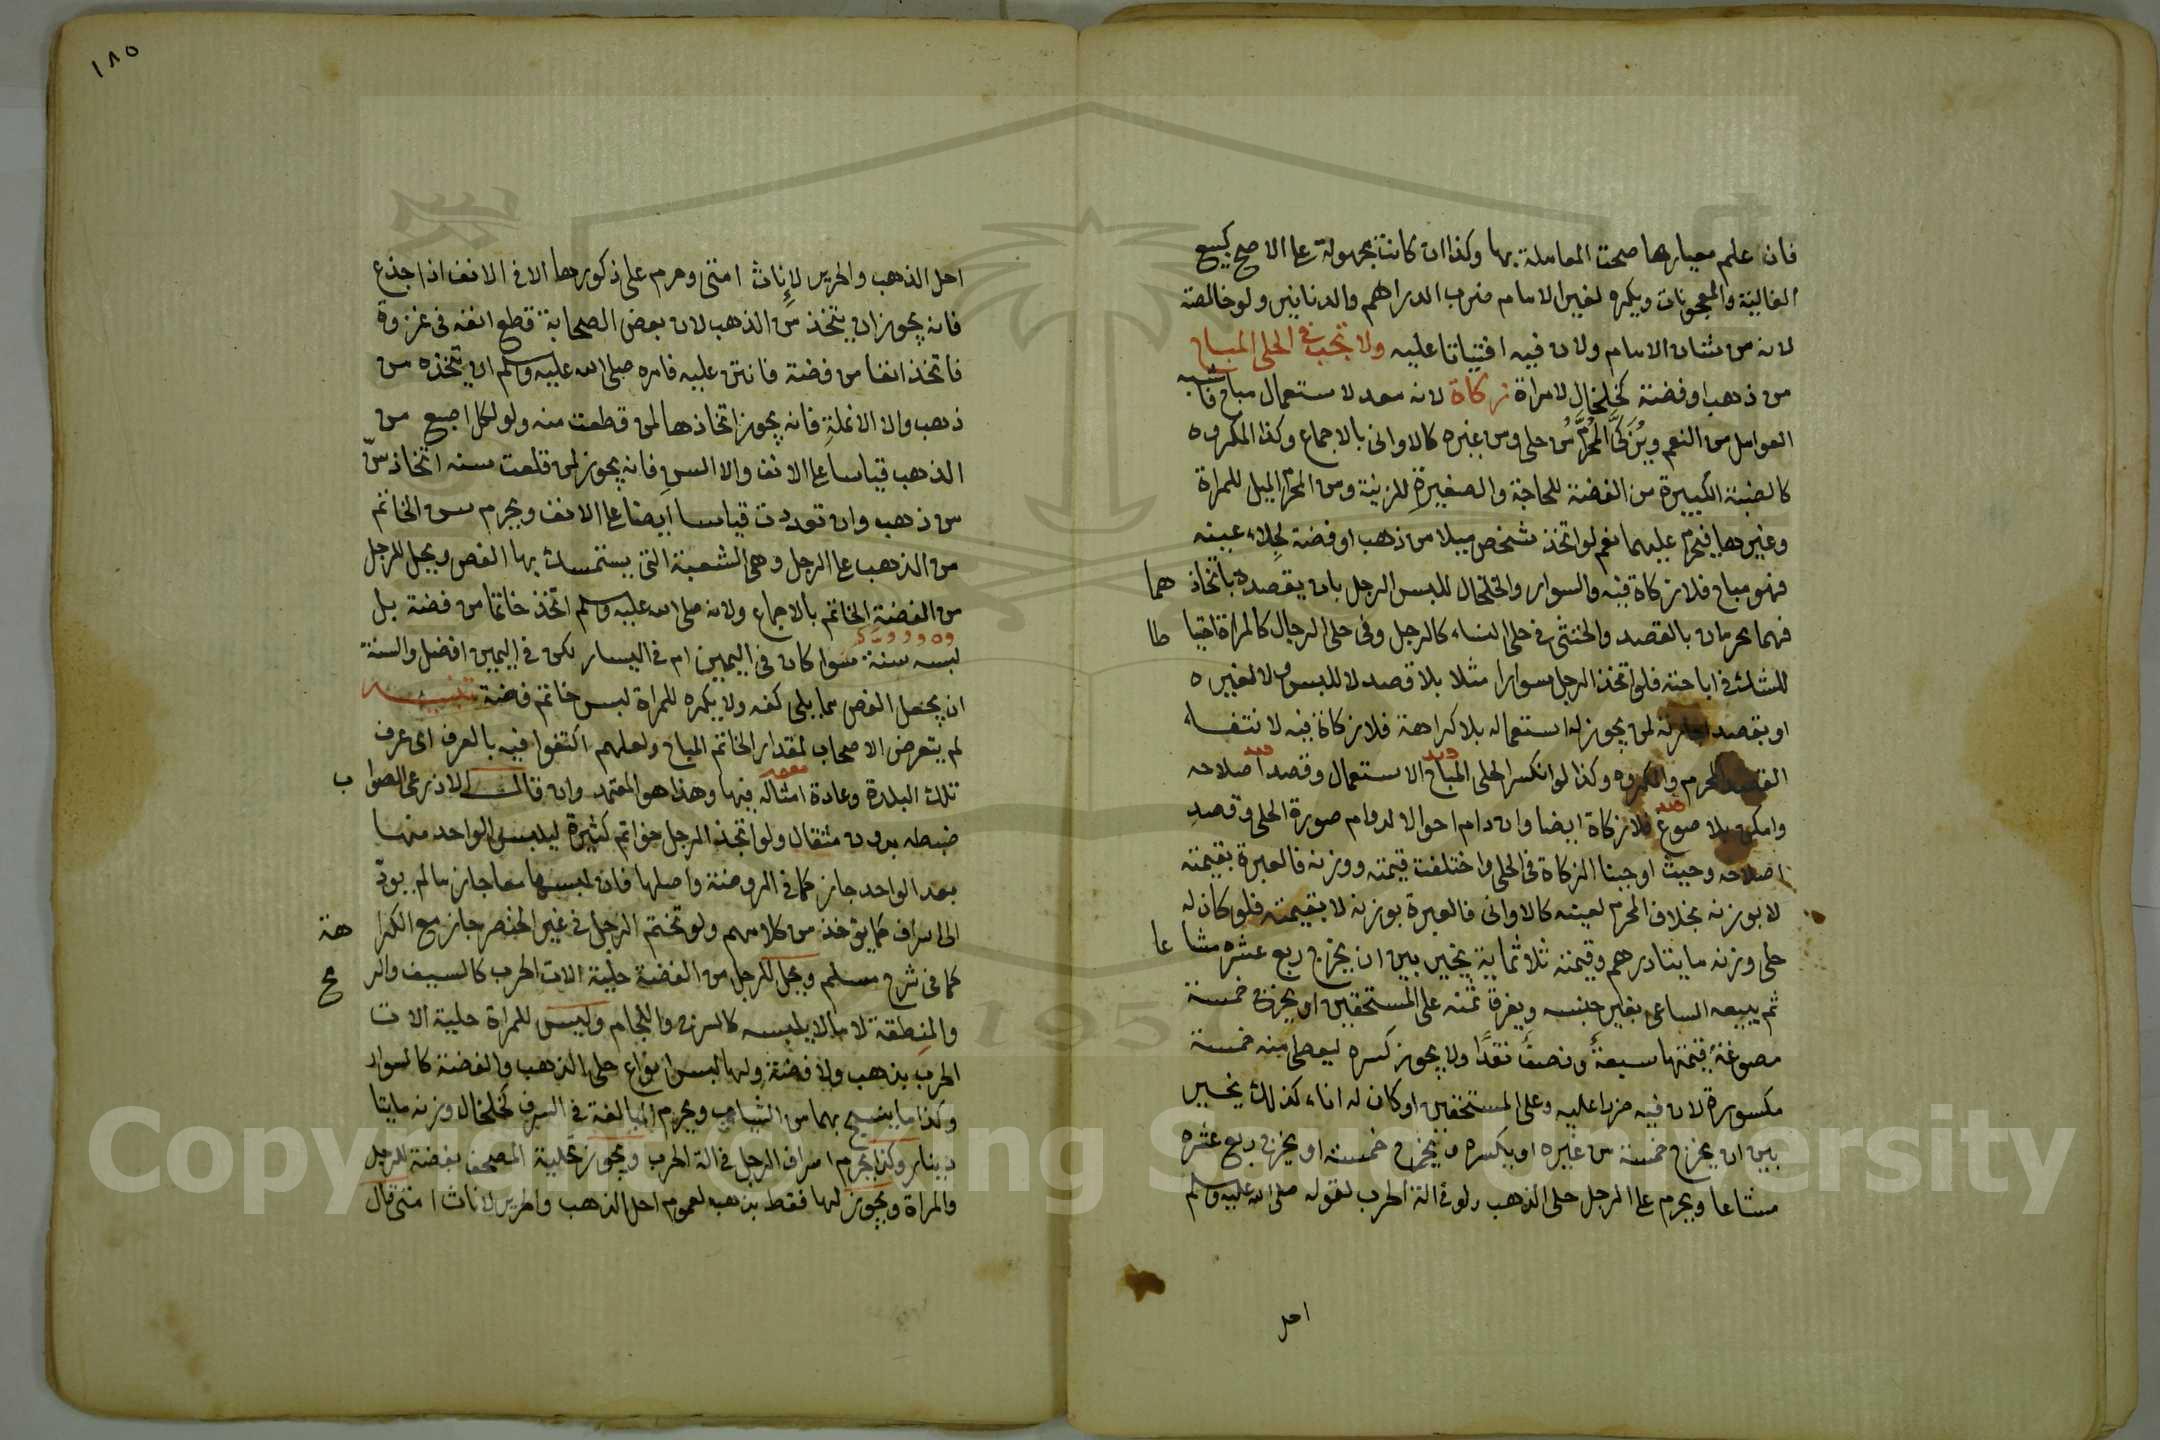 فان علم معيارها صحت المعاملة بها وكذا ان كانت مجهولة على الاصح كبيع
الغالية والمعجونات ويكره لغير الامام ضرب الدراهم والدنانير ولو خالصة
لانه من شان الامام ولان فيه افتياتا عليه ولا تجب في الحلى المباح
من ذهب او فضة كخلخال لامراة زكاة لانه معد لاستعمال مباح فاشبه
العوامل من النعم ويزكى المحرم من حلى ومن غيره كالاوانى بالاجماع وكذا المكروه
كالضبة الكبيرة من الفضة للحاجة والصغيرة للزينة ومن المحرم الميل للمراة
وغيرها فيحرم عليهما نعم لو اتخذ شخص ميلا من ذهب او فضة لجلاء عينه
فهو مباح فلا زكاة فيه والسوار والخلخال للبس الرجل بان يقصده باتخاذ هما
فهما محرمان بالقصد والخنثى في حلى النساء كالرجل وفى حلى الرجال كالمراة احتيا طا
للشك في اباحته فلو اتخذ الرجل سوارا مثلا بلا قصد لا للبس ولا لغيره
او بقصد اجارته لمن يجوز له استعماله بلا كراهة فلا زكاة فيه لانتفاء
القصد المحرم والمكروه وكذا لو انكسر الحلى المباح الاستعمال وقصد اصلاحه
وامكن بلا صوغ فلا زكاة ايضا وان دام احوالا لدوام صورة الحلى وقصد
اصلاحه وحيث اوجبنا الزكاة في الحلى واختلفت قيمته ووزنه فالعبرة بقيمته
لا بوزنه بخلاف المحرم لعينه كالاوانى فالعبرة بوزنه لا بقيمته فلو كان له
حلى وزنه مايتا درهم وقيمته ثلاثماية يخير بين ان يخرج ربع عشره مشا عا
ثم يبيعه الساعى بغير جنسه ويفرق ثمنه على المستحقين او يخرج خمسة
مصوغة قيمتها سبعة ونصف نقدا ولا يجوز كسره ليعطى منه خمسة
مكسورة لان فيه ضررا عليه وعلى المستحقين او كان له اناء كذلك يخير
بين ان يخرج خمسة من غيره او يكسره فيخرج خمسة او يخرج ربع عشره
مشاعا ويحرم على الرجل حلى الذهب ولو في الة الحرب لقوله صلى الله عليه وسلم
احل
١٨٥
احل الذهب والحرير لاناث امتى وحرم على ذكورها الا في الانف اذا جدع
فانه يجوز ان يتخذ من الذهب لان بعض الصحابة قطع انفه في غزوة
فاتخذ انفا من فضة فانتن عليه فامره صلى الله عليه وسلم ان يتخذه من
ذهب والا الانملة فانه يجوز اتخاذها لمن قطعت منه ولو لكل اصبع من
الذهب قياسا على الانف والا السن فانه يجوز لمن قلعت سنه اتخاذ سن
من ذهب وان تعددت قياسا ايضا على الانف ويحرم سن الخاتم
من الذهب على الرجل وهى الشعبة التى يستمسك بها الفص ويحل للرجل
من الفضة الخاتم بالاجماع ولانه صلى الله عليه وسلم اتخذ خاتما من فضة بل
لبسه سنة سوا كان في اليمين ام في اليسار لكن في اليمين افضل والسنة
ان يجعل الفص مما يلى كفه ولا يكره للمراة لبس خاتم فضة تنبيه
لم يتعرض الاصحاب لمقدار الخاتم المباح ولعلهم اكتفوا فيه بالعرف اى عرف
تلك البلدة وعادة امثاله فيها وهذا هو المعتمد وان قال الاذرعى الصوا ب
ضبطه بدون مثقال ولو اتخذ الرجل خواتم كثيرة ليلبس الواحد منها
بعد الواحد جاز كما في الروضة واصلها فان لبسها معا جاز ما لم يودّ
الى اسراف كما يؤخذ من كلامهم ولو تختم الرجل في غير الخنصر جاز مع الكرا هة
كما في شرح مسلم ويحل للرجل من الفضة حلية الات الحرب كالسيف والر مح
والمنطقة لا ما لا يلبسه كالسرج واللجام وليس للمراة حلية الات
الحرب بذهب ولا فضة ولها لبس انواع حلى الذهب والفضة كالسوار
وكذا ما ينسج بهما من الثياب ويحرم المبالغة في السرف كخلخال وزنه مايتا
دينار وكذا يحرم اسراف الرجل في الة الحرب ويجوز تحلية المصحف بفضة للرجل
والمراة ويجوز لها فقط بذهب لعموم احل الذهب والحرير لاناث امتى قال
Copyright © King Saud University
1957